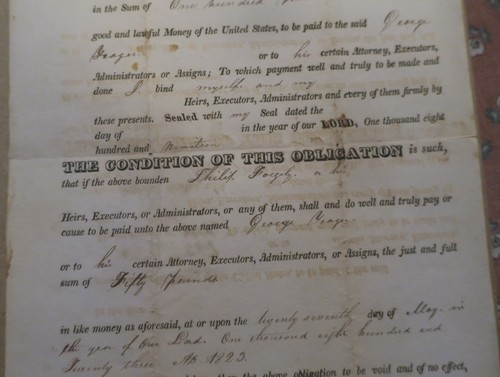 in the Sum of One hundred
good and lawful Money of the United States, to be paid to the said George
or to his certain Attorney, Executors,
Administrators or Assigns; To which payment well and truly to be made and
done I bind myself and my
Heirs, Executors, Administrators and every of them firmly by
these presents. Sealed with my Seal dated the
day of in the year of our LORD, One thousand eight
hundred and Nineteen
THE CONDITION OF THIS OBLIGATION is such,
that if the above bounden Philip
Heirs, Executors, or Administrators, or any of them, shall and do well and truly pay or
cause to be paid unto the above named George
or to his certain Attorney, Executors, Administrators, or Assigns, the just and full
sum of Fifty pounds
in like money as aforesaid, at or upon the twenty seventh day of May in
the year of Our Lord One thousand eight hundred and
Twenty three AD 1823
then the above obligation to be void and of no effect,